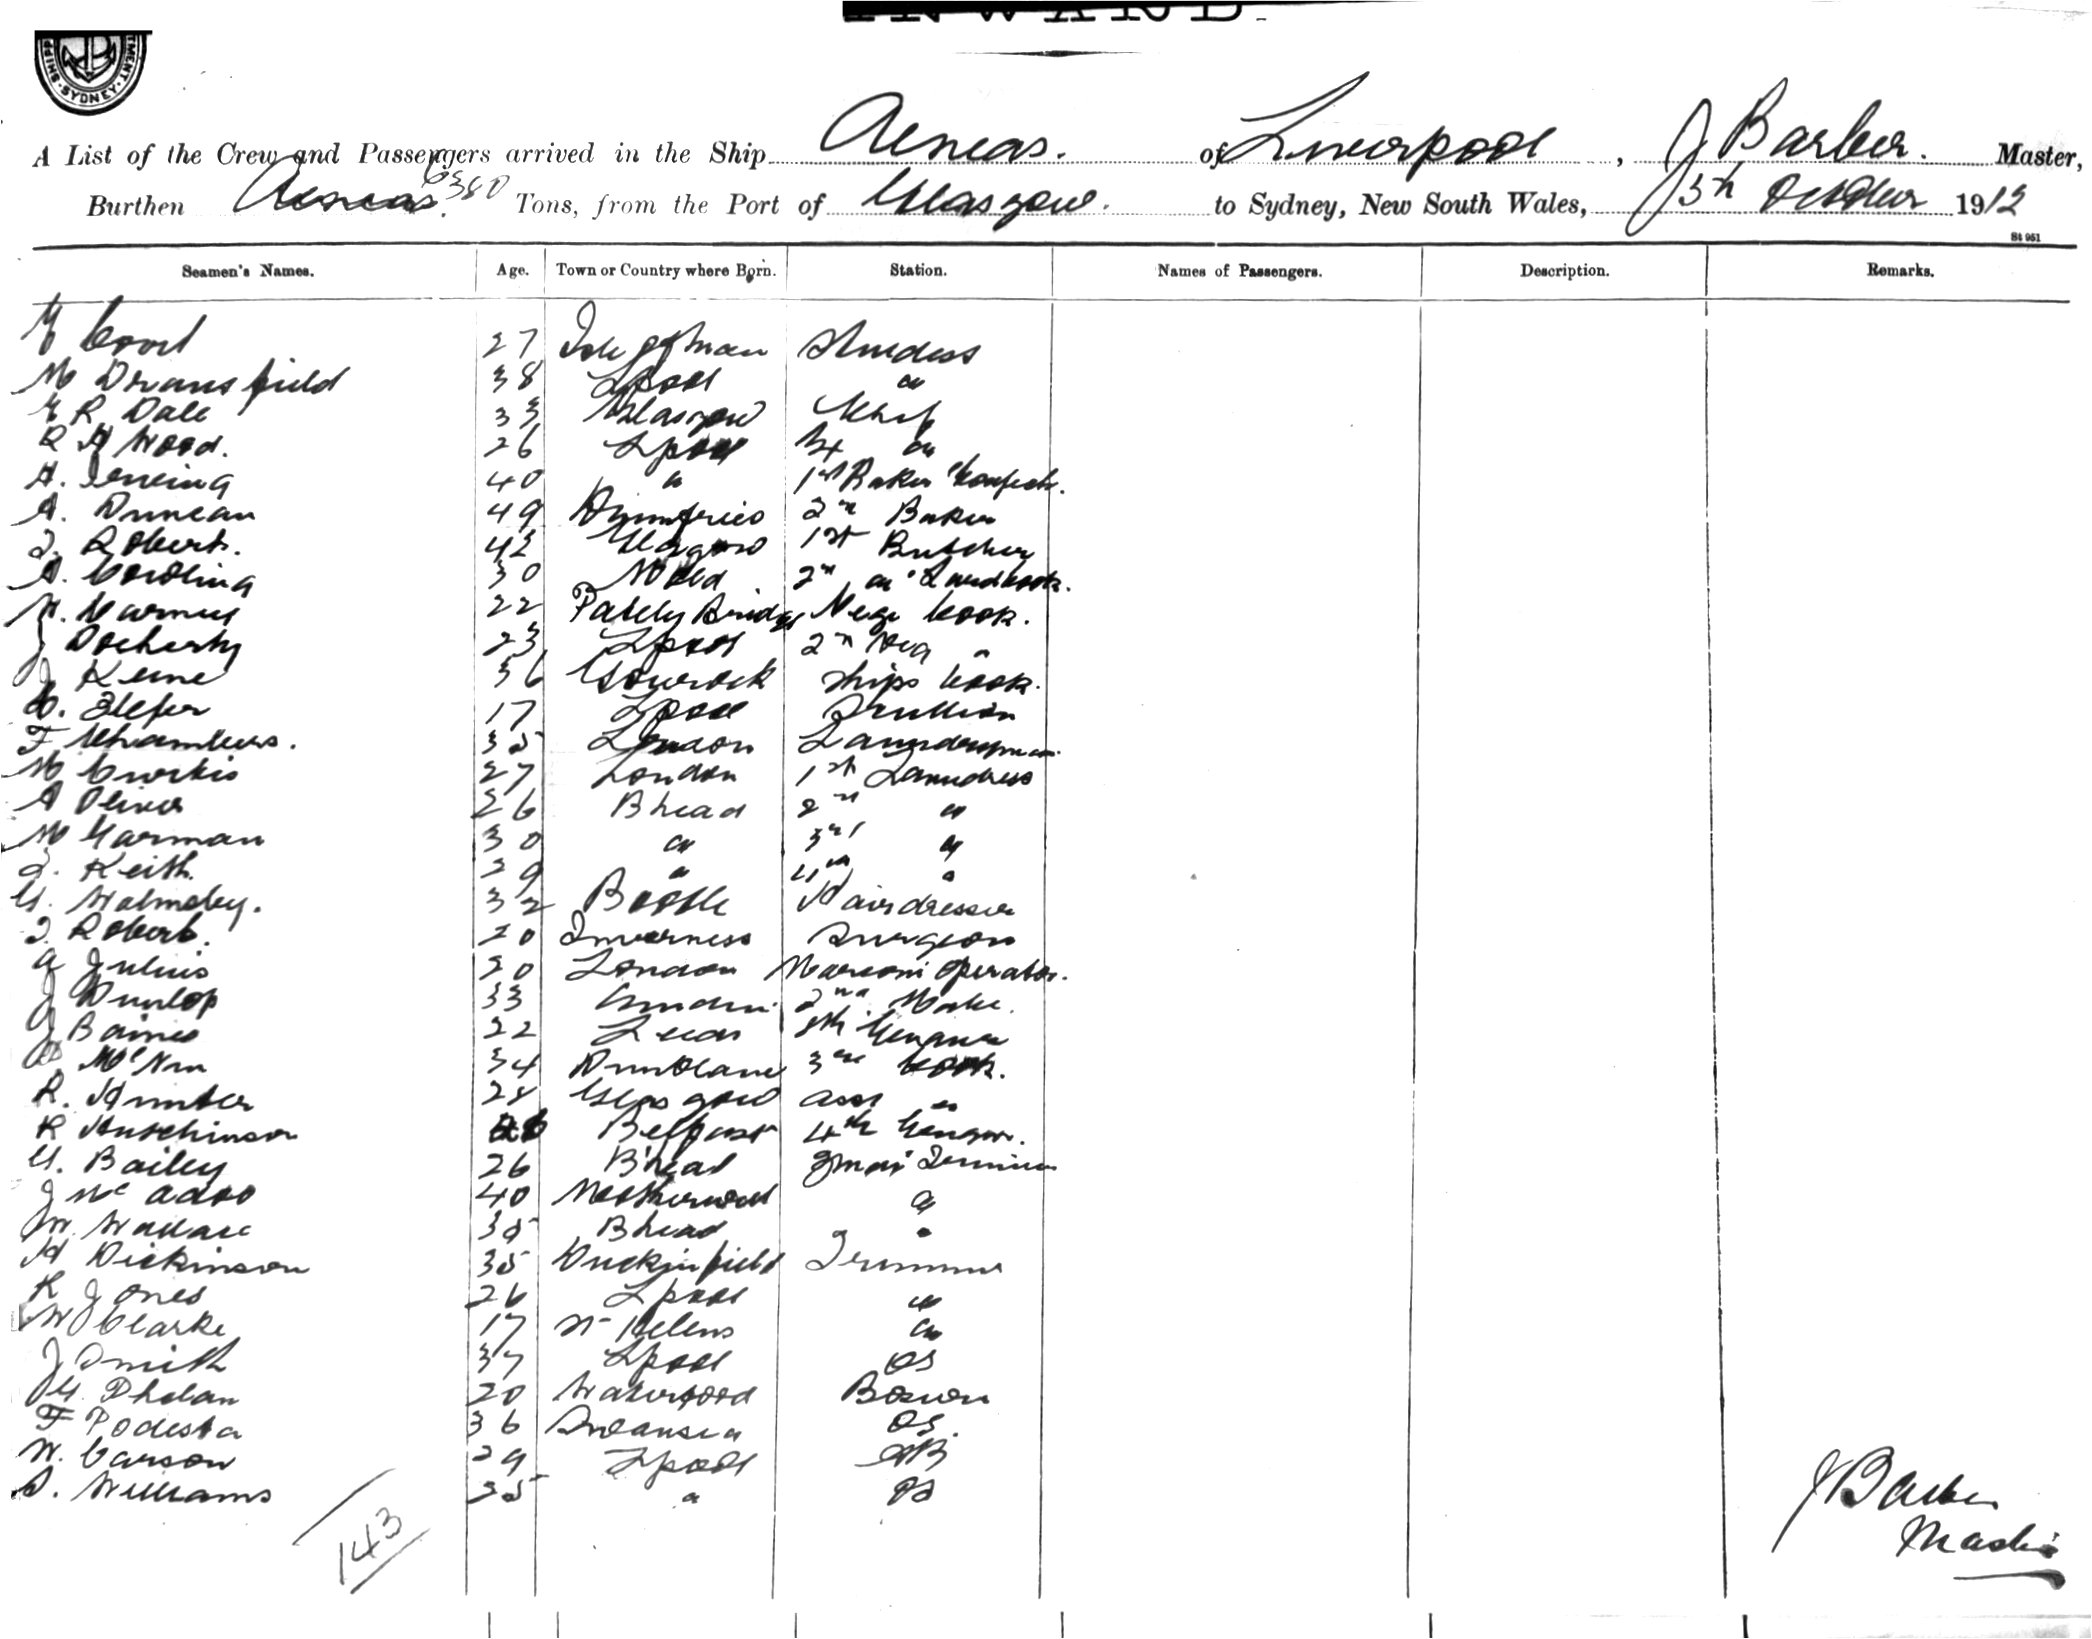 INWARD.
SHIPP MENT SYDNEY
A List of the Crew and Passengers arrived in the Ship Aeneas. of Liverpool, J Barber. Master,
Burthen Aeneas. 6380 Tons, from the Port of Glasgow. to Sydney, New South Wales, 15th October 1912
St 951
Seamen's Names. Age. Town or Country where Born. Station. Names of Passengers. Description. Remarks.
E 27 Isle of Man Studess
M Dransfield 38 Lpool "
E R Dale 33 Glasgow Chef
R H Wood. 26 Lpool "
H. Irving 40 " 1st Baker Confect.
A. Duncan 49 Dumfries 2nd Baker
J. Roberts. 42 Glasgow 1st Butcher
A. 30 Mold 2nd " Lardcook.
H. 22 Pately Bridge Vege Cook.
J Docherty 23 Lpool 2nd Veg "
J Keine 36 Gourock Ships Cook.
17 Lpool Scullion
F Chambers. 35 London Laundryman
M Curtis 27 London 1st Laundress
A Oliver 26 Bhead 2nd "
M Garman 30 " 3rd "
I. Keith. 29 " 4th "
G. Walmsley. 32 Bootle Hairdresser
J. Roberts. 20 Inverness Surgeon
A Julius 20 London Marconi Operator.
J Dunlop 33 2nd Mate.
J Baines 22 Leeds 8th Engineer
34 Dunblane 3rd Cook.
R. Hunter 28 Glasgow Asst "
R Hutchinson Belfast 4th Engnr.
G. Bailey 26 B'head
J Mc Adoo 40 Motherwell "
W. Wallace 35 Bhead "
H Dickinson 35 Duckinfield Trimmer
R Jones 26 Lpool "
W Clarke 17 St Helens "
J Smith 37 Lpool OS
G. Phelan 20 Waterford Bosun
F Podesta 36 Swansea OS.
W. Carson 29 Lpool AB
D. Williams 35 " OS
143
J Barber
Master